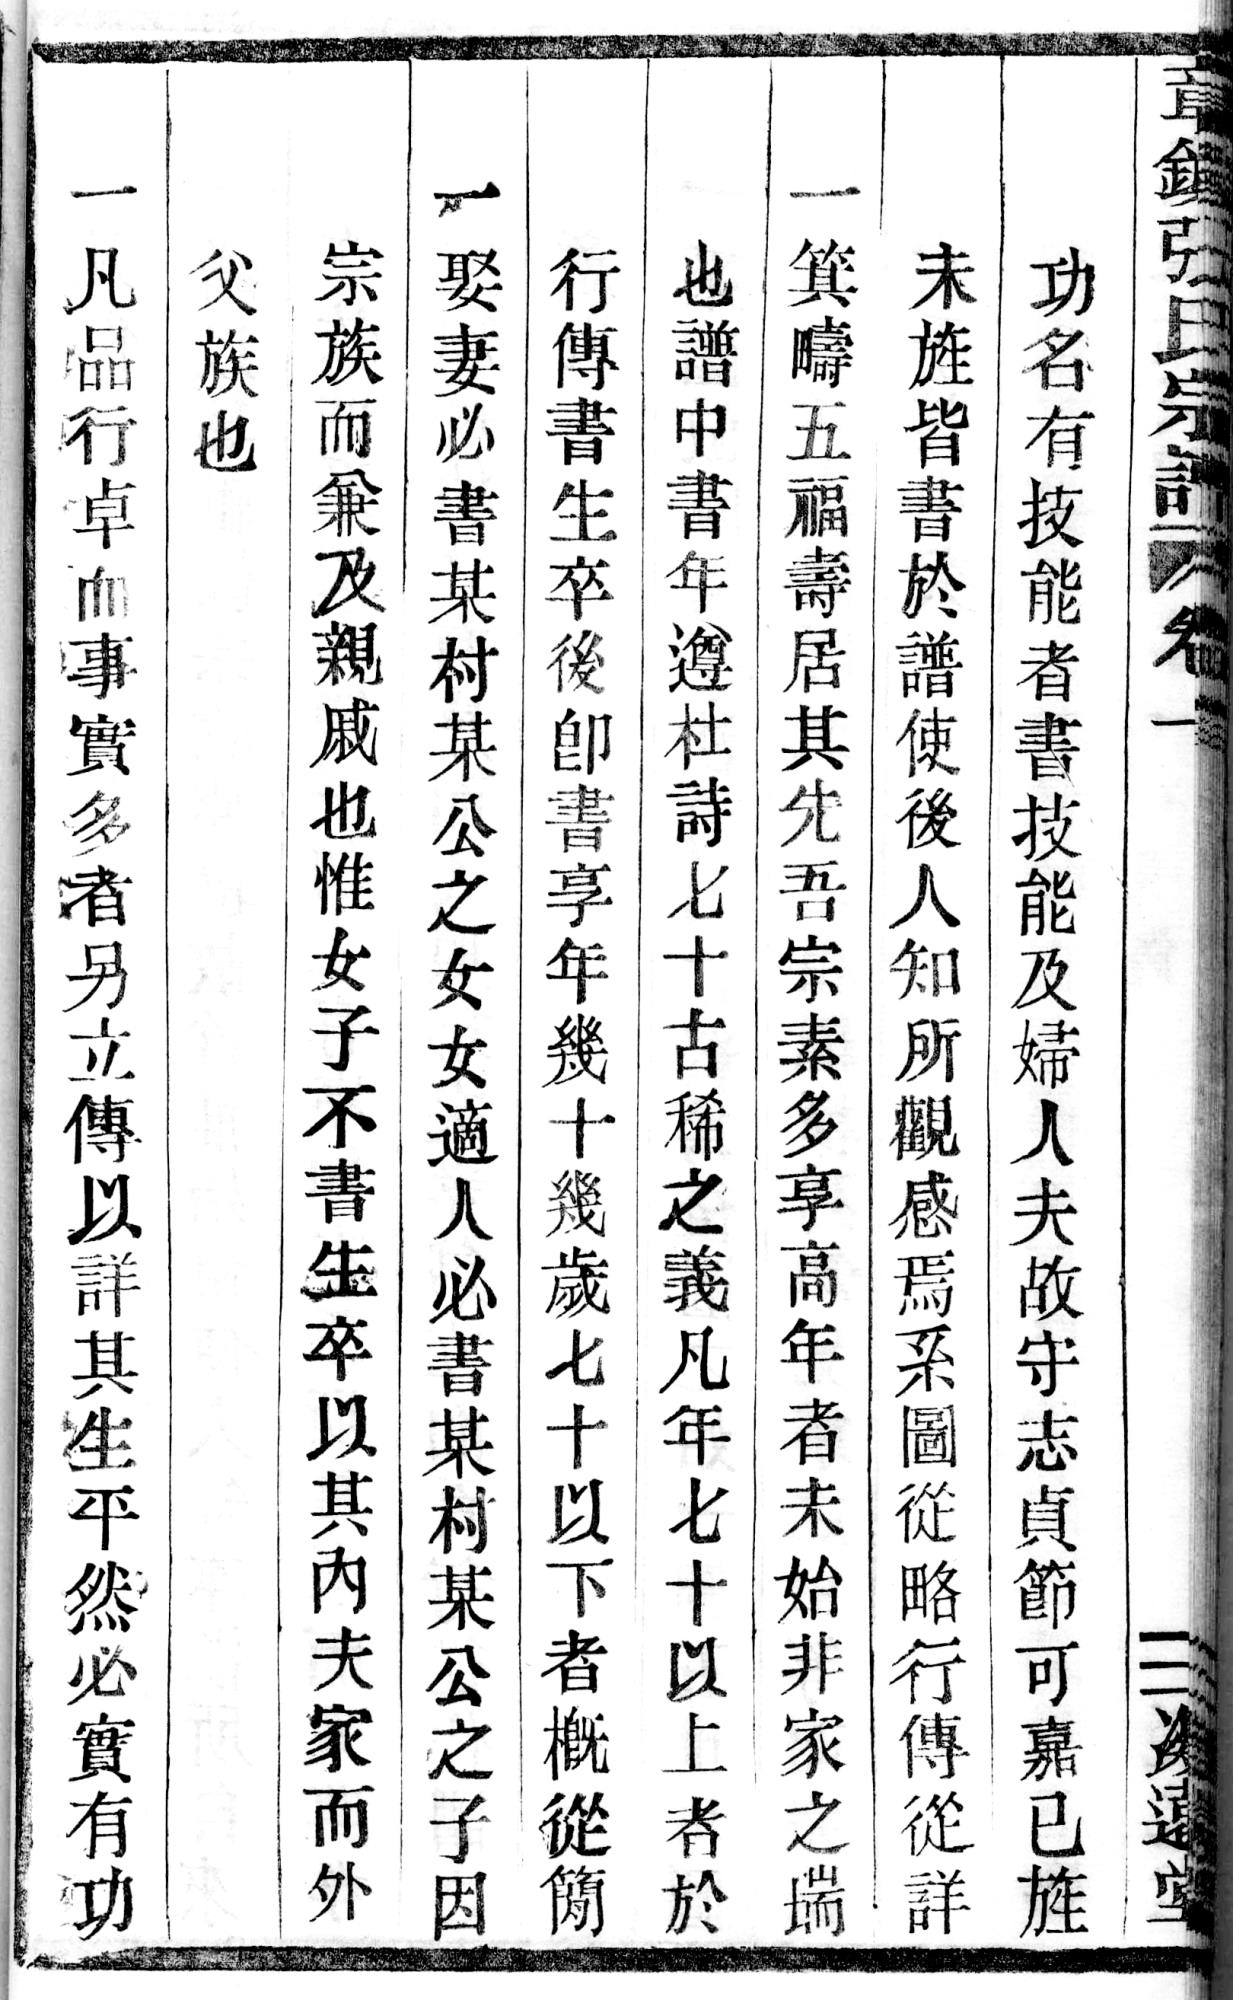 章鎮張氏宗譜 卷一 二 追遠堂
功名有技能者書技能及婦人夫故守志貞節可嘉已旌
未旌皆書於譜使後人知所觀感焉系圖從略行傳從詳
一箕疇五福壽居其先吾宗素多享高年者未始非家之瑞
也譜中書年遵杜詩七十古稀之義凡年七十以上者於
行傳書生卒後卽書享年幾十幾歲七十以下者槪從簡
一娶妻必書某村某公之女女適人必書某村某公之子因
宗族而兼及親戚也惟女子不書生卒以其內夫家而外
父族也
一凡品行卓而事實多者另立傳以詳其生平然必實有功